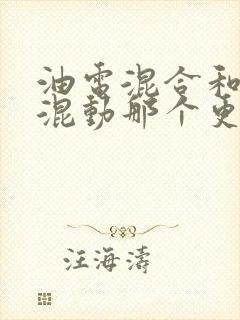 油电混合和
混动那个更
汪海涛